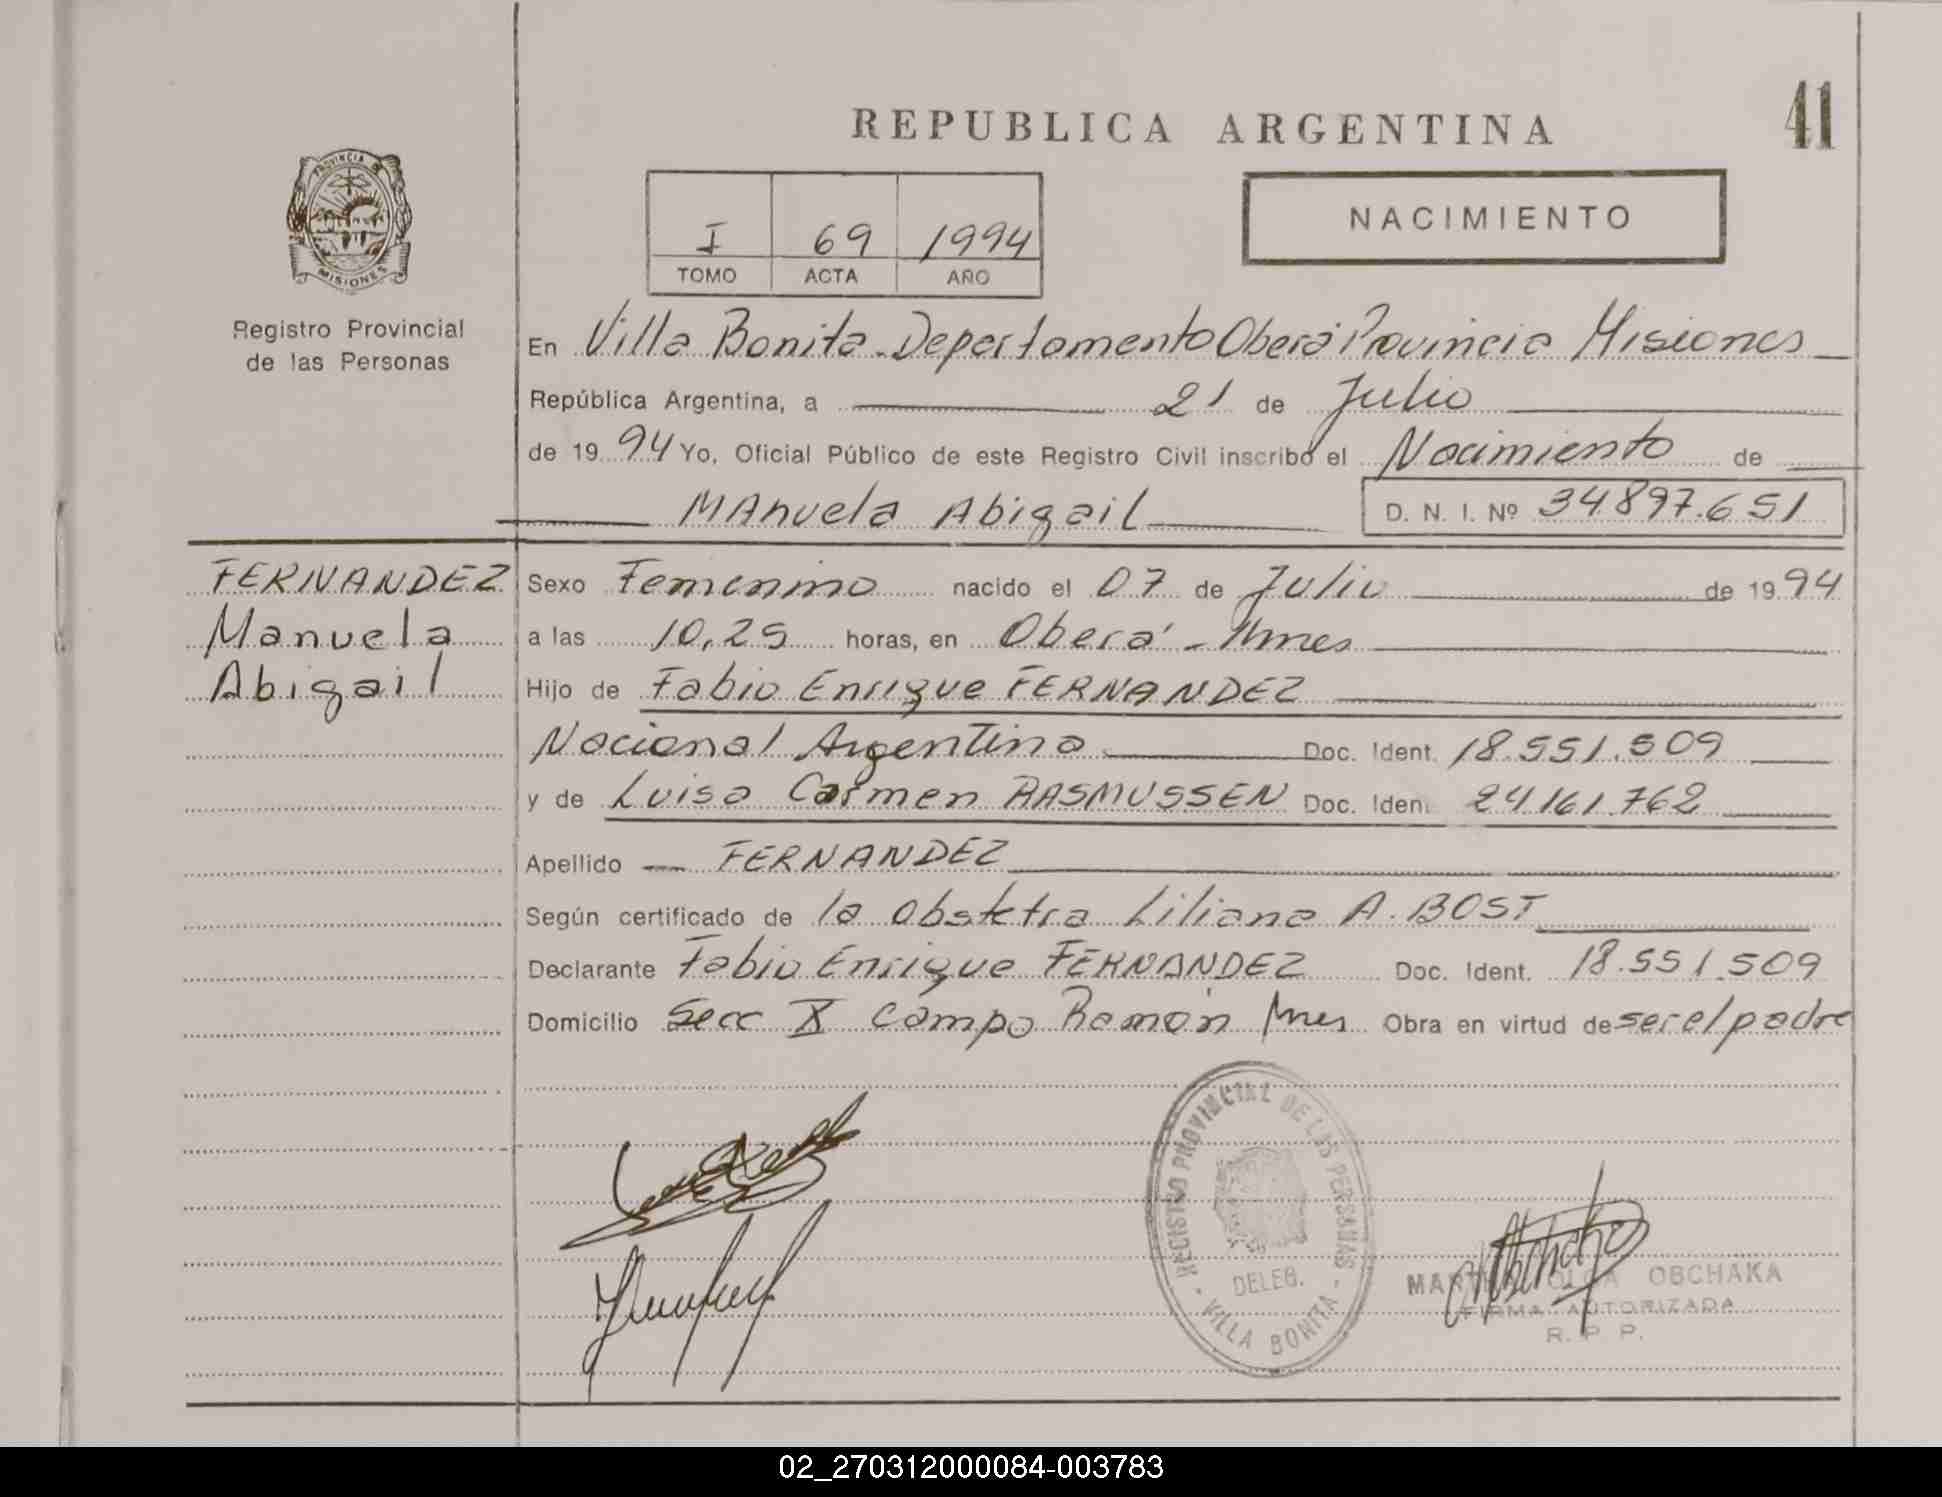 REPUBLICA ARGENTINA
41
PROVINCIA DE
MISIONES
Registro Provincial
de las Personas
I 69 1994
TOMO ACTA AÑO
NACIMIENTO
En Villa Bonita - Departamento Oberá Provincia Misiones
República Argentina, a 21 de Julio
de 1994 Yo, Oficial Público de este Registro Civil inscribo el Nacimiento de
Manuela Abigail D. N. I. Nº 34.897.651
FERNANDEZ
Manuela
Abigail
Sexo Femenino nacido el 07 de Julio de 1994
a las 10,25 horas, en Oberá - Mnes
Hijo de Fabio Enrique FERNANDEZ
Nacional Argentina Doc. Ident. 18.551.509
y de Luisa Carmen RASMUSSEN Doc. Iden. 24.161.762
Apellido FERNANDEZ
Según certificado de la Obstetra Liliana A. BOST
Declarante Fabio Enrique FERNANDEZ Doc. Ident. 18.551.509
Domicilio Secc X Campo Ramón Mnes Obra en virtud de ser el padre
REGISTRO PROVINCIAL DE LAS PERSONAS
DELEG.
- VILLA BONITA -
MARTHA OLGA OBCHAKA
FIRMA AUTORIZADA
R. P. P.
02_270312000084-003783